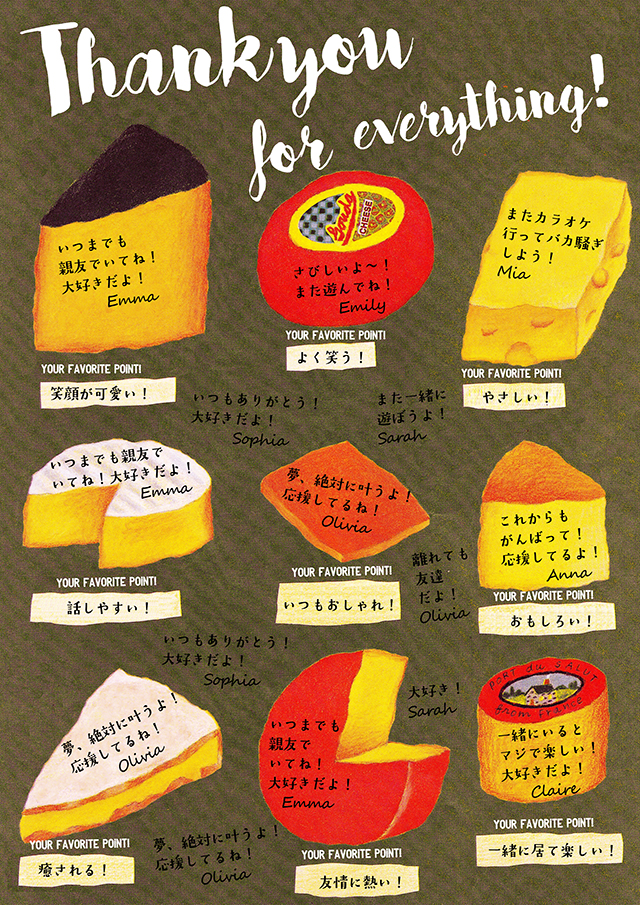 Thank you
for everything!
いつまでも
親友でいてね!
大好きだよ!
Emma
YOUR FAVORITE POINT!
笑顔が可愛い!
Gouda
CHEESE
さびしいよ~!
また遊んでね!
Emily
YOUR FAVORITE POINT!
よく笑う!
またカラオケ
行ってバカ騒ぎ
しよう!
Mia
YOUR FAVORITE POINT!
やさしい!
いつもありがとう!
大好きだよ!
Sophia
また一緒に
遊ぼうよ!
Sarah
いつまでも親友で
いてね!大好きだよ!
Emma
YOUR FAVORITE POINT!
話しやすい!
夢、絶対に叶うよ!
応援してるね!
Olivia
YOUR FAVORITE POINT!
いつもおしゃれ!
これからも
がんばって!
応援してるよ!
Anna
YOUR FAVORITE POINT!
おもしろい!
離れても
友達
だよ!
Olivia
いつもありがとう!
大好きだよ!
Sophia
夢、絶対に叶うよ!
応援してるね!
Olivia
YOUR FAVORITE POINT!
癒される!
夢、絶対に叶うよ!
応援してるね!
Olivia
いつまでも
親友で
いてね!
大好きだよ!
Emma
YOUR FAVORITE POINT!
友情に熱い!
大好き!
Sarah
PORT du SALUT
from France
一緒にいると
マジで楽しい!
大好きだよ!
Claire
YOUR FAVORITE POINT!
一緒に居て楽しい!